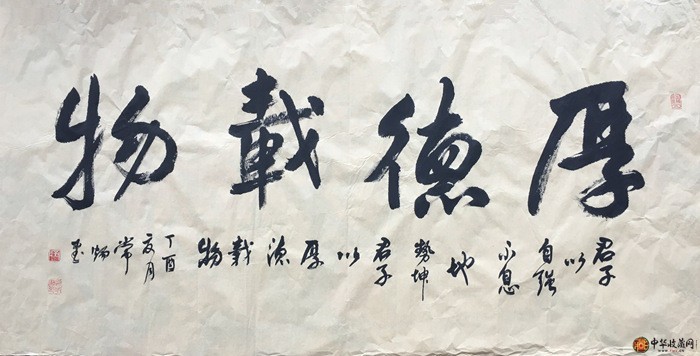 厚德載物
君子以自强不息地勢坤君子以厚德載物
丁酉夏月常书
中华收藏网